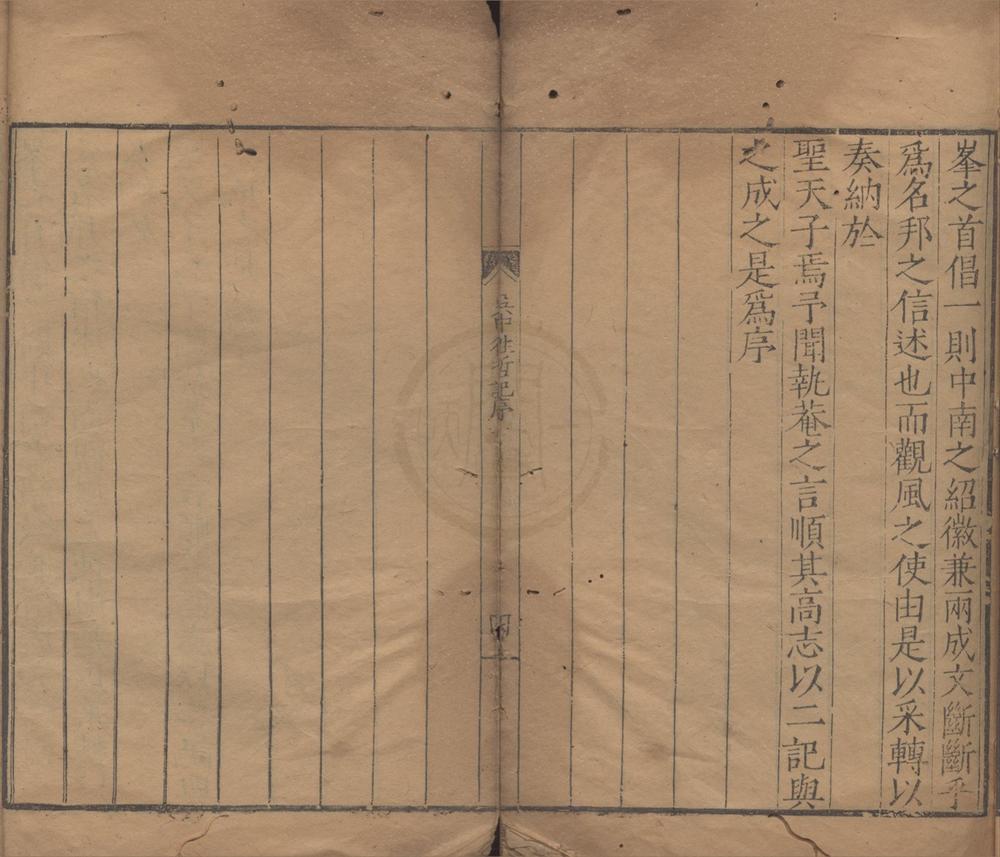 峯之首倡一則中南之紹徽兼兩成文斷斷乎
爲名邦之信述也而觀風之使由是以采轉以
奏納於
聖天子焉予聞執菴之言順其高志以二記與
之成之是爲序
吳中往哲記序
四